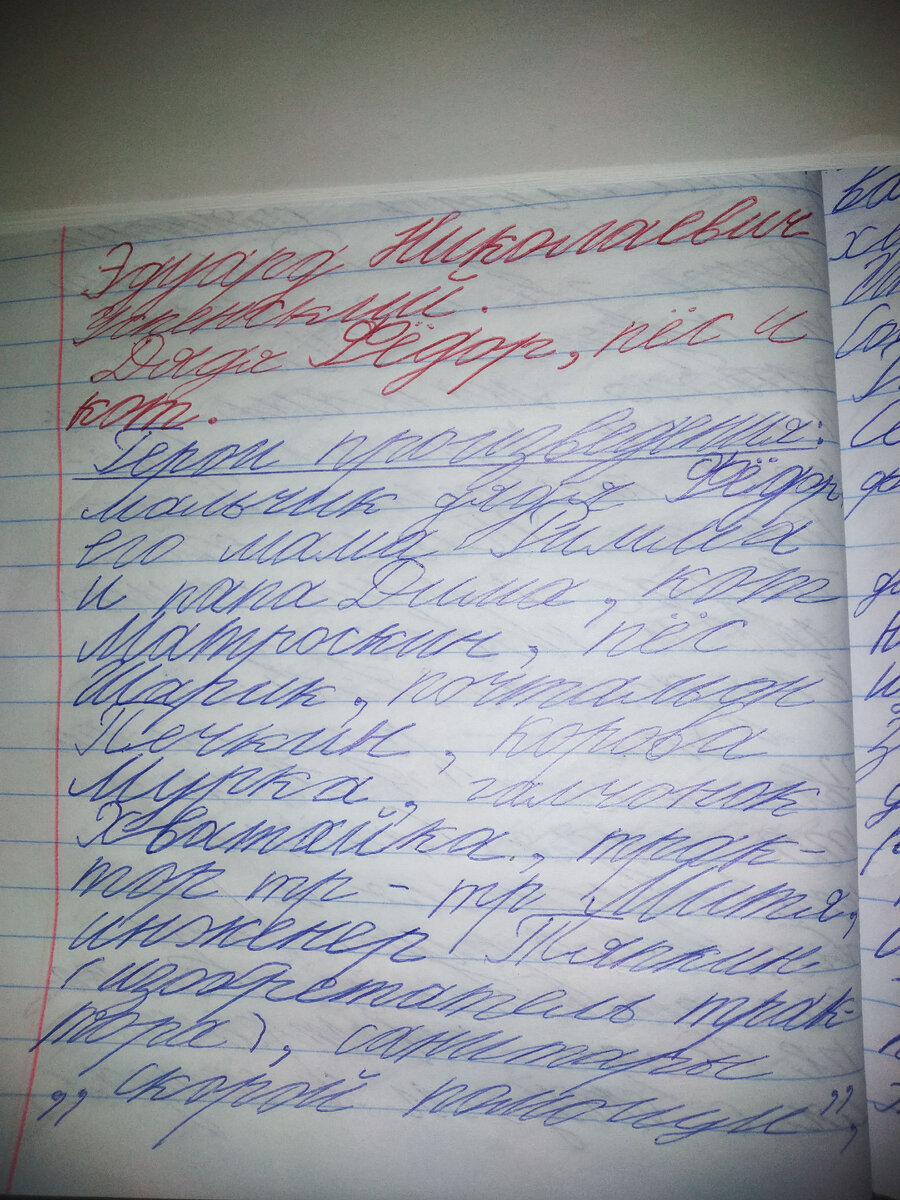 Эдуард Николаевич
Успенский.
Дядя Фёдор, пёс и
кот.
Герои произведения:
мальчик дядя Фёдор
его мама Римма
и папа Дима, кот
Матроскин, пёс
Шарик, почтальон
Печкин, корова
Мурка, галчонок
Хватайка, трак-
тор тр-тр Митя,
инженер Тяпкин
(изобретатель трак-
тора), санитары
„скорой помощи”,